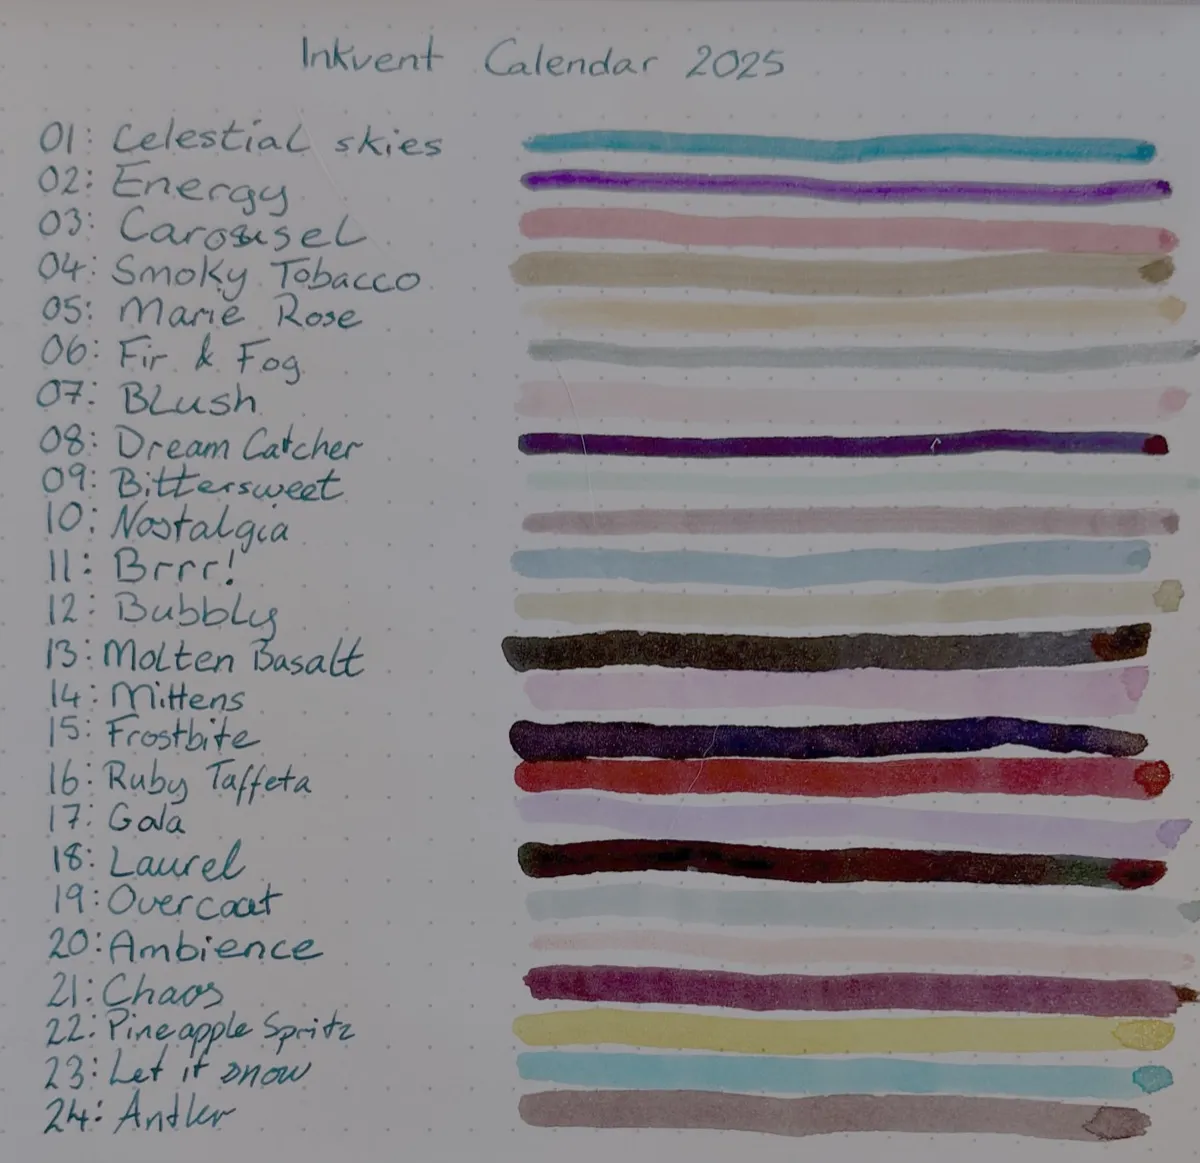 Inkvent Calendar 2025
01: Celestial skies
02: Energy
03: Carousel
04: Smoky Tobacco
05: Marie Rose
06: Fir & Fog
07: Blush
08: Dream Catcher
09: Bittersweet
10: Nostalgia
11: Brrr!
12: Bubbly
13: Molten Basalt
14: Mittens
15: Frostbite
16: Ruby Taffeta
17: Gala
18: Laurel
19: Overcoat
20: Ambience
21: Chaos
22: Pineapple Spritz
23: Let it snow
24: Antler